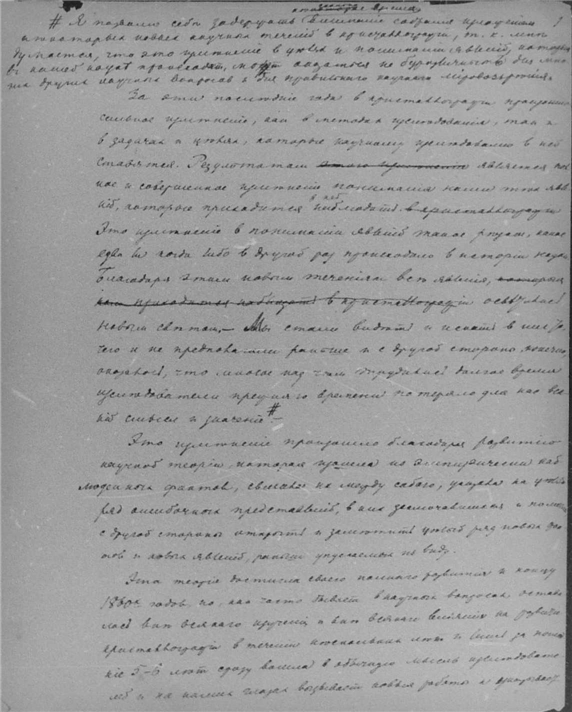 Я позволю себе задержать внимание собрания
некоторых новых научных течений в кристаллографии, т. к. мне
думается, что это изменение в целях и понимании явлений, которое
в нашей науке происходит, может оказаться не безразличным для мно
гих других научных вопросов и для правильного научного мировоззрения.
За эти последние годы в кристаллографии произошло
сильное изменение, как в методах исследования, так и
в задачах и целях, которые научному исследованию в ней
ставятся. Результатом этого изменения является пол
ное и совершенное изменение понимания нами тех явле
ній, которые приходится в ней наблюдать в кристаллографии
Это изменение в понимании явлений такое резкое, какое
едва ли когда либо в другой раз происходило в истории науки
Благодаря этим новым течениям все явления, которыя
нам приходится наблюдать в кристаллографіи осветились
новым светом. Мы стали видеть и искать в них то,
чего и не предполагали раньше и с другой стороны, конечно
оказалось, что многое над чем трудились долгое время
исследователи прежнего времени потеряло для нас вся
кий смысл и значение
Это изменение произошло благодаря развитию
научной теории, которая из эмпирически наб
людённых фактов, связав их между собою, указала на целый
ряд ошибочных представлений, в них заключавшихся и
с другой стороны открыть и заметить целый ряд новых фак
тов и новых явлений, раньше упускаемых из виду.
Эта теория достигла своего полного развития к концу
1880х годов, но, как часто бывает в научных вопросах, остава
лась вне всякого изучения и вне всякого влияния на развитие
кристаллографии в течении нескольких лет и лишь за после
дние 5-6 лет сразу вошла в обычную мысль исследовате
лей и на наших глазах вызывает новыя работы и